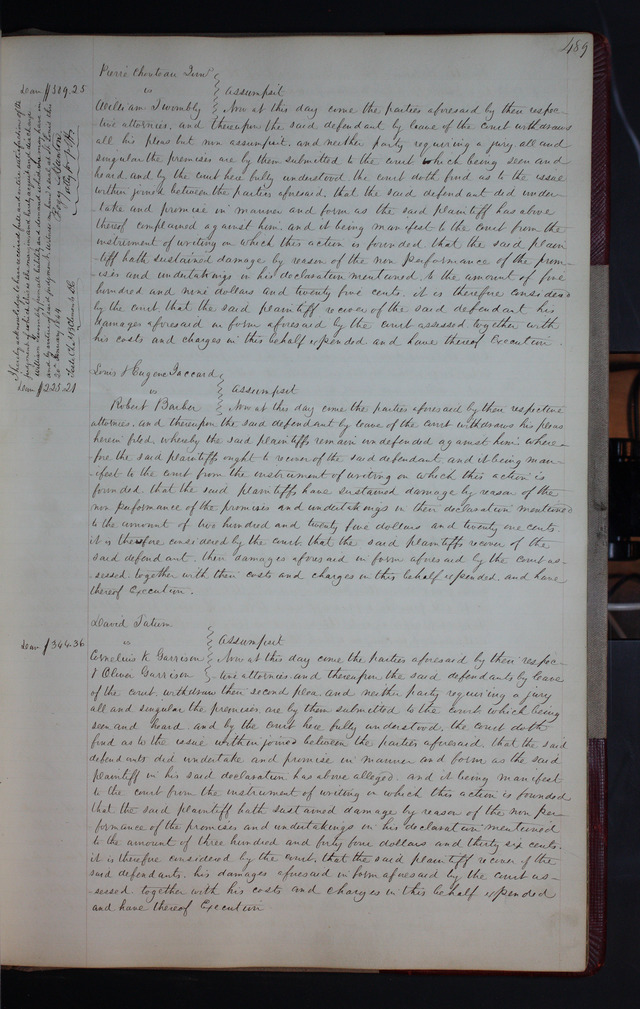 489
Pierre Chouteau Junr
vs } Assumpsit
William Twombly } Now at this day come the parties aforesaid by their respec-
tive attornies, and thereupon the said defendant by leave of the court withdraws
all his pleas but non assumpsit, and neither party requiring a jury all and
singular the premises are by them submitted to the court which being seen and
heard and by the court here fully understood the court doth find as to the issue
within joined between the parties aforesaid, that the said defendant did under-
take and promise in manner and form as the said plaintiff has above
thereof complained against him, and it being manifest to the court from the
instrument of writing on which this action is founded that the said plain-
tiff hath sustained damage by reason of the non performance of the prom-
ises and undertakings in his declaration mentioned, to the amount of five
hundred and nine dollars and twenty five cents, it is therefore considered
by the court, that the said plaintiff recover of the said defendant his
damages aforesaid in form aforesaid by the court assessed, together with
his costs and charges in this behalf expended and have thereof Execution.
Dam $509.25
I hereby acknowledge to have received full and entire satisfaction of the
Louis & Eugene Jaccard
vs } Assumpsit
Robert Barber } Now at this day come the parties aforesaid by their respective
attornies, and thereupon the said defendant by leave of the court withdraws his pleas
herein filed, whereby the said plaintiffs remain undefended against him where-
fore the said plaintiffs ought to recover of the said defendant, and it being man-
ifest to the court from the instrument of writing on which this action is
founded, that the said plaintiffs have sustained damage by reason of the
non performance of the promises and undertakings in their declaration mentioned
to the amount of two hundred and twenty five dollars and twenty one cents.
it is therefore considered by the court, that the said plaintiffs recover of the
said defendant their damages aforesaid in form aforesaid by the court as-
sessed, together with their costs and charges in this behalf expended, and have
thereof Execution.
Dam $225.21
David Tatum
vs } Assumpsit
Cornelius K Garrison } Now at this day come the parties aforesaid by their respec-
& Oliver Garrison } tive attornies, and thereupon the said defendants by leave
of the court withdraw their second plea and neither party requiring a jury
all and singular the premises are by them submitted to the court which being
seen and heard, and by the court here fully understood, the court doth
find as to the issue within joined between the parties aforesaid, that the said
defendants did undertake and promise in manner and form as the said
plaintiff in his said declaration has above alleged, and it being manifest
to the court from the instrument of writing on which this action is founded
that the said plaintiff hath sustained damage by reason of the non per-
formance of the promises and undertakings in his declaration mentioned
to the amount of three hundred and forty four dollars and thirty six cents.
it is therefore considered by the court, that the said plaintiff recover of the
said defendants, his damages aforesaid in form aforesaid by the court as-
sessed, together with his costs and charges in this behalf expended
and have thereof Execution
Dam $344.36